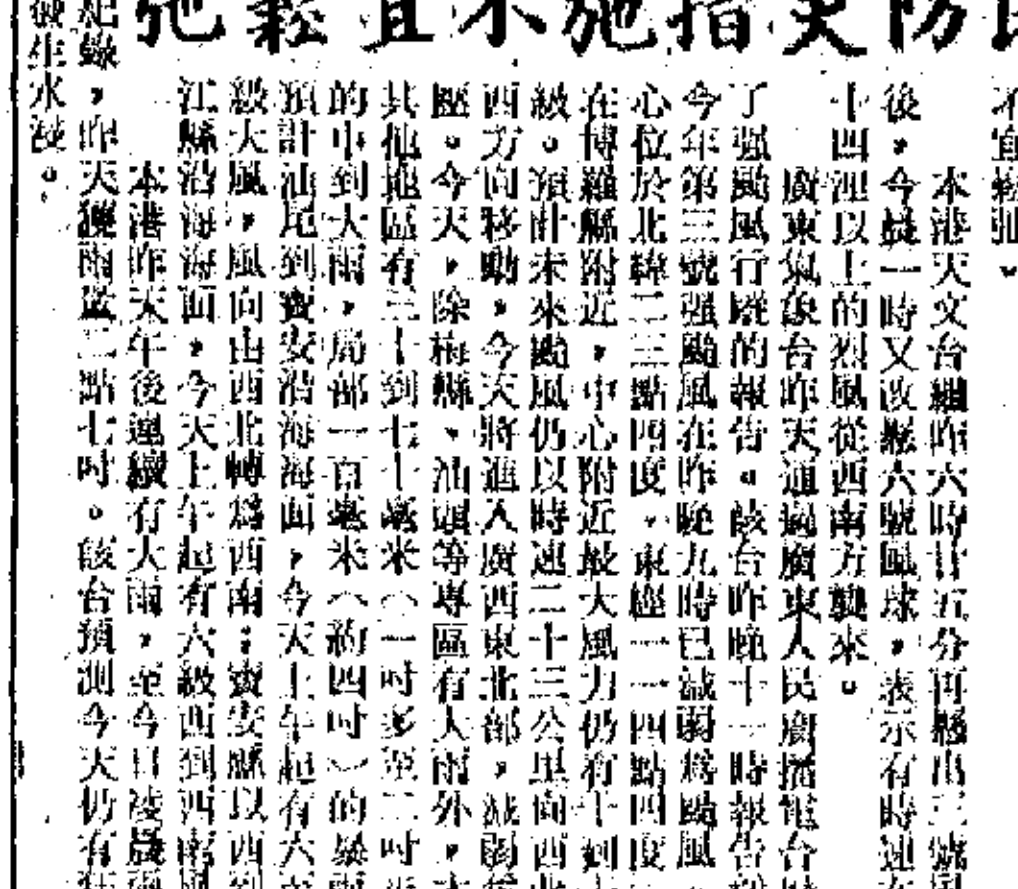 防更指施不宜鬆弛
不宜鬆弛、
本港天文台繼昨六時廿五分再懸出三號風
後，今晨一時又改懸六號風球，表示有時速
十四浬以上的烈風從西南方襲來。
廣東氣象台昨天通過廣東人民廣播電台
了强颱風行蹤的報告。該台昨晚十一時報告
今年第三號强颱風在昨晚九時已減弱爲颱風，
心位於北緯二三點四度，東經一一四點四度
在博羅縣附近，中心附近最大風力仍有十到
級。預計未來颱風仍以時速二十三公里向西北
西方向移動，今天將進入廣西東北部，減弱
壓。今天，除梅縣、汕頭等專區有大雨外，
其他地區有三十到七十毫米（一吋多至二吋
的中到大雨，局部一百毫米（約四吋）的暴
預計汕尾到寶安沿海海面，今天上午起有六
級大風，風向由西北轉爲西南；寶安縣以西到
江縣沿海海面，今天上午起有六級西到西南風
本港昨天午後連續有大雨，至今日凌晨
紀錄，昨天獲雨量二點七吋。該台預測今天仍有
生水浸。